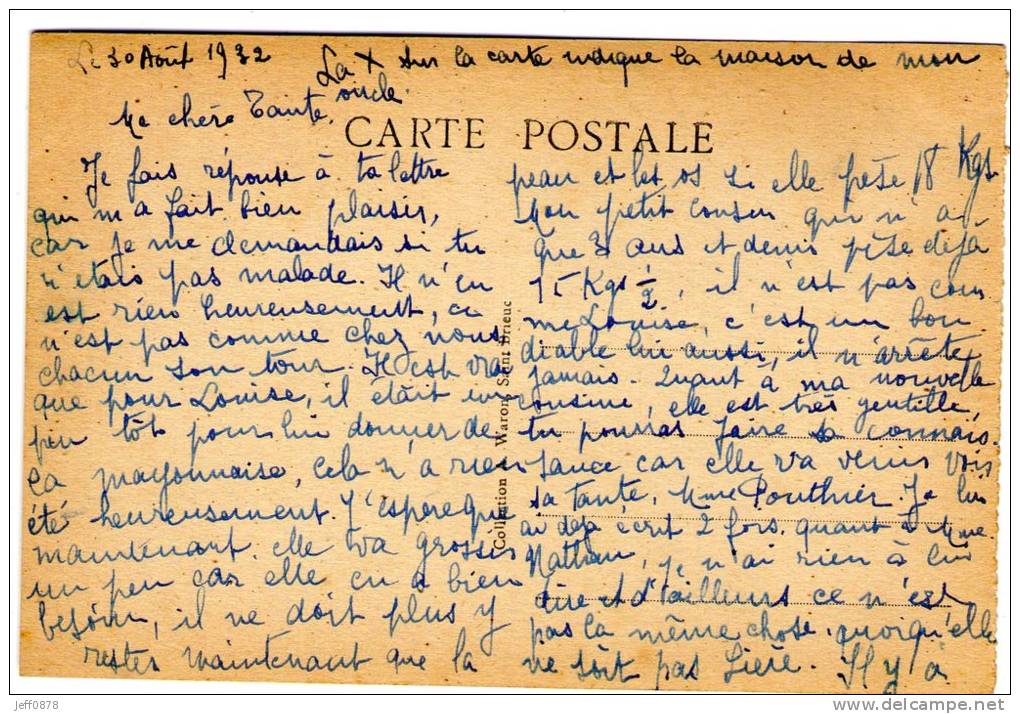 Le 30 Août 1932
La X sur la carte indique la maison de mon
oncle.
Ma chère Tante,
CARTE POSTALE
Je fais réponse à ta lettre
qui m'a fait bien plaisir,
car je me demandais si tu
n'étais pas malade. Il n'en
est rien heureusement, ce
n'est pas comme chez nous
chacun son tour. Il est vrai
que pour Louise, il était un
peu tôt pour lui donner de
la mayonnaise, cela n'a rien
été heureusement. J'espère que
maintenant elle va grossir
un peu car elle en a bien
besoin, il ne doit plus y
rester maintenant que la
Collection Waron, Saint Brieuc
peau et les os si elle pèse 18 Kgs
Mon petit cousin qui n'a
que 3 ans et demi pèse déjà
15 Kgs ½, il n'est pas com
me Louise, c'est un bon
diable lui aussi, il n'arrête
jamais. Quant à ma nouvelle
cousine, elle est très gentille,
tu pourras faire sa connais-
sance car elle va venir voir
sa tante, Mme Pouthier. Je lui
ai déjà écrit 2 fois. quant à Mme
Nathan, je n'ai rien à lui
dire et d'ailleurs ce n'est
pas la même chose. quoiqu'elle
ne soit pas fière. Il y a
jeff0878
www.delcampe.net